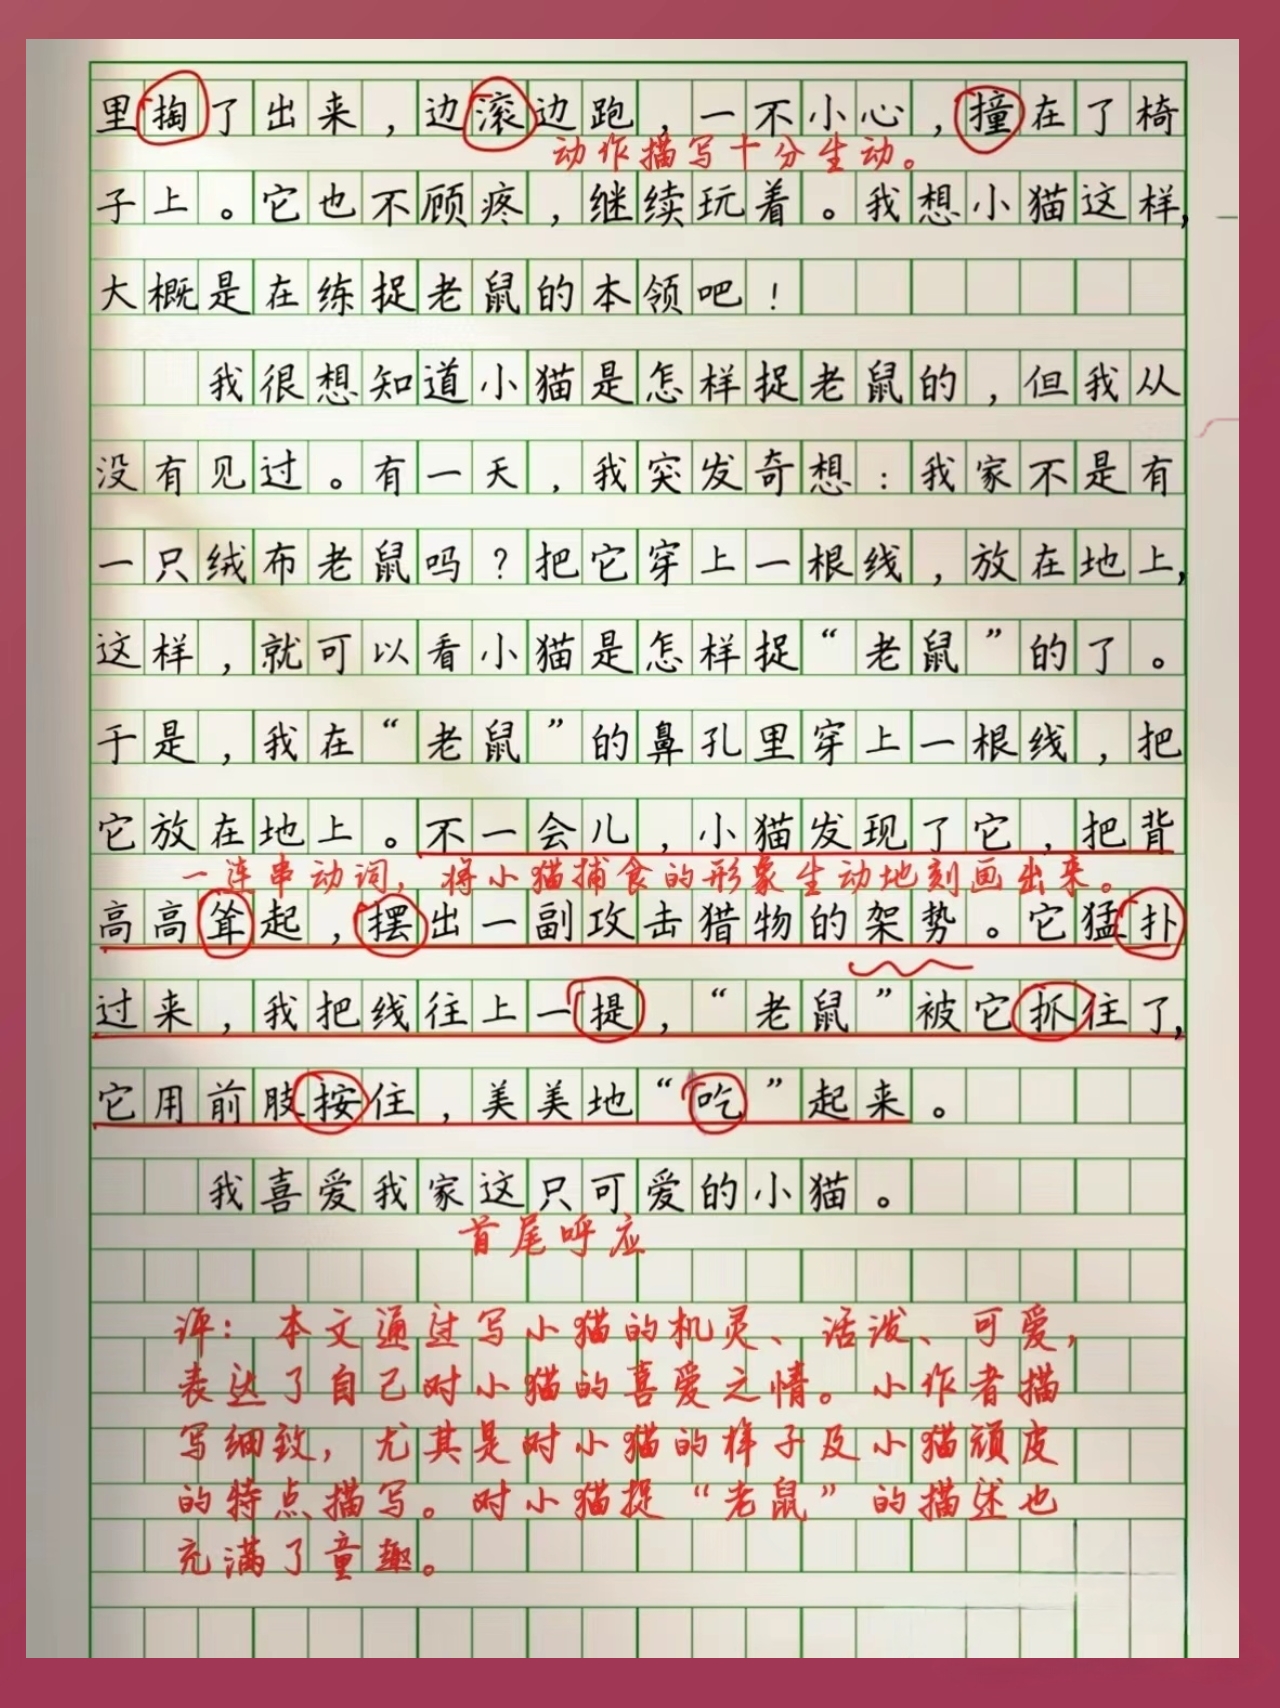 里掏了出来，边滚边跑，一不小心，撞在了椅
动作描写十分生动。
子上。它也不顾疼，继续玩着。我想小猫这样，
大概是在练捉老鼠的本领吧！
我很想知道小猫是怎样捉老鼠的，但我从
没有见过。有一天，我突发奇想：我家不是有
一只绒布老鼠吗？把它穿上一根线，放在地上，
这样，就可以看小猫是怎样捉“老鼠”的了。
于是，我在“老鼠”的鼻孔里穿上一根线，把
它放在地上。不一会儿，小猫发现了它，把背
一连串动词，将小猫捕食的形象生动地刻画出来。
高高耸起，摆出一副攻击猎物的架势。它猛扑
过来，我把线往上一提，“老鼠”被它抓住了，
它用前肢按住，美美地“吃”起来。
我喜爱我家这只可爱的小猫。
首尾呼应
评：本文通过写小猫的机灵、活泼、可爱，
表达了自己对小猫的喜爱之情。小作者描
写细致，尤其是对小猫的样子及小猫顽皮
的特点描写。对小猫捉“老鼠”的描述也
充满了童趣。